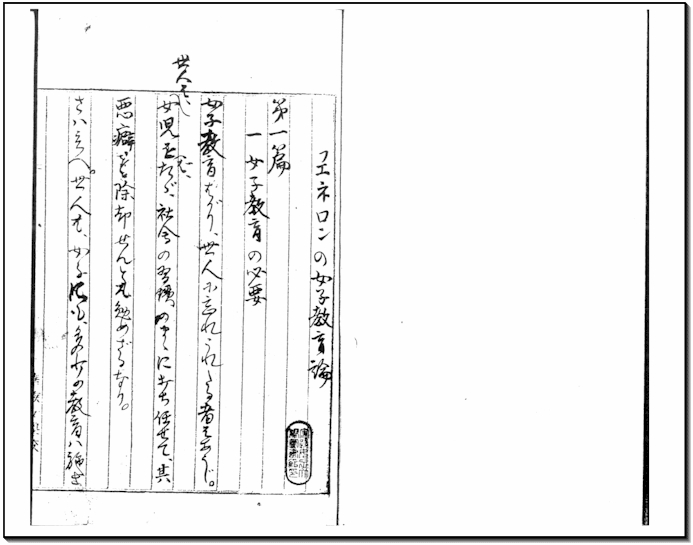 フエネロンの女子教育論
第一篇
一 女子教育の必要
女子教育ばかり、世人に忘れられたる者はあらじ。
世人は、
女児をたゞ、社会の習慣のまゝに打ち任せて、其
悪癖を除却せんとも勉めざるなり。
さはいへ。世人も、女子にも、多少の教育ハ施す